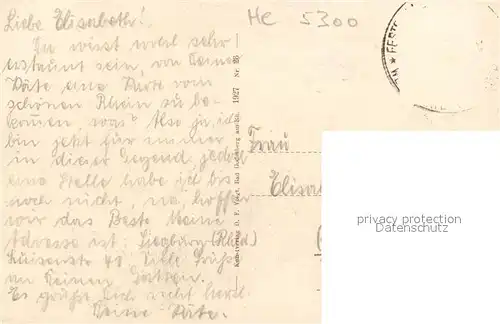 Liebe Elisabeth!
Du wirst wohl sehr
erstaunt sein, von Deiner
Käte eine Karte vom
schönen Rhein zu be-
kommen, was? Also ja, ich
bin jetzt für immer
in dieser Gegend, jedoch
eine Stelle habe ich bis
noch nicht, na, hoffen
wir das Beste. Meine
Adresse ist: Siegburg (Rhld)
Luisenstr 40. Viele Grüße
an Deinen
Es grüßt Dich recht herzl.
Deine Käte.
1927 Nr. 
HE 5300
FESTE
Frau
Elisa
privacy protection